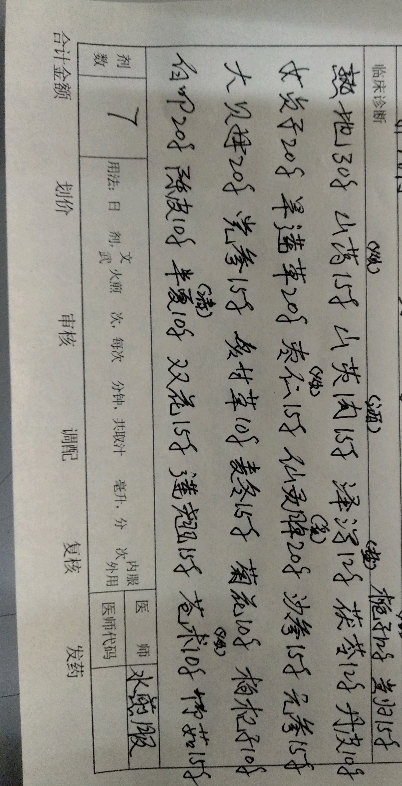 临床诊断 栀子12g 当归15g
(炒) (酒) (盐)
熟地30g 山药15g 山萸肉15g 泽泻12g 茯苓12g 丹皮10g
(炒) (炙)
女贞子20g 旱莲草20g 枣仁15g 仙灵脾20g 沙参15g 元参15g
大贝母20g 党参15g 麦冬15g 菊花10g 枸杞子10g
(清) (炒)
陈皮10g 半夏10g 双花15g 连翘15g 苍术10g
剂数 7 用法：日 剂，文武火煎 次，每次 分钟，共取汁 毫升，分 次 内服外用 医师 水煎服
医师代码
合计金额 划价 审核 调配 复核 发药